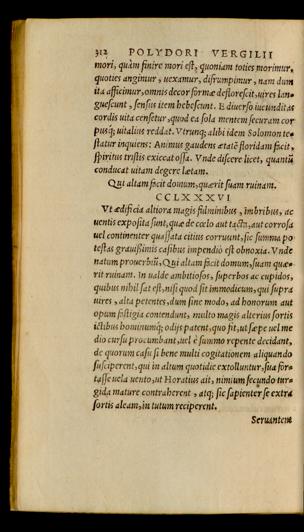 312 POLYDORI VERGILII
mori, quàm finire mori est, quoniam toties morimur,
quoties angimur, uexamur, disrumpimur, nam dum
ita afficimur, omnis decor formæ deflorescit, uires lan-
guescunt, sensus item hebescunt. E diuerso iucunditas
cordis uita censetur, quod ea sola mentem securam cor
pusq́; uitalius reddat. Vtrunq; alibi idem Solomon te-
statur inquiens: Animus gaudens ætatẽ floridam facit,
spiritus tristis exiccat ossa. Vnde discere licet, quantũ
conducat uitam degere lætam.
Qui altam facit domum, quærit suam ruinam.
CCLXXXVI
Vt ædificia altiora magis fulminibus, imbribus, ac
uentis exposita sunt, quæ de cœlo aut tacta, aut corrosa
uel continenter quassata citius corruunt, sic summa po
testas grauissimis casibus impendiò est obnoxia. Vnde
natum prouerbiũ, Qui altam facit domum, suam quæ-
rit ruinam. In ualde ambitiosos, superbos ac cupidos,
quibus nihil sat est, nisi quod sit immodicum, qui supra
uires, alta petentes, dum sine modo, ad honorum aut
opum fastigia contendunt, multo magis alterius sortis
ictibus hominumq́; odijs patent, quo fit, ut sæpe uel me
dio cursu procumbant, uel è summo repente decidant,
de quorum casu si bene multi cogitationem aliquando
susciperent, qui in altum quotidie extolluntur, sua for-
tasse uela uento, ut Horatius ait, nimium secundo tur-
gida mature contraherent, atq; sic sapienter se extra
sortis aleam, in tutum reciperent.
Seruantem